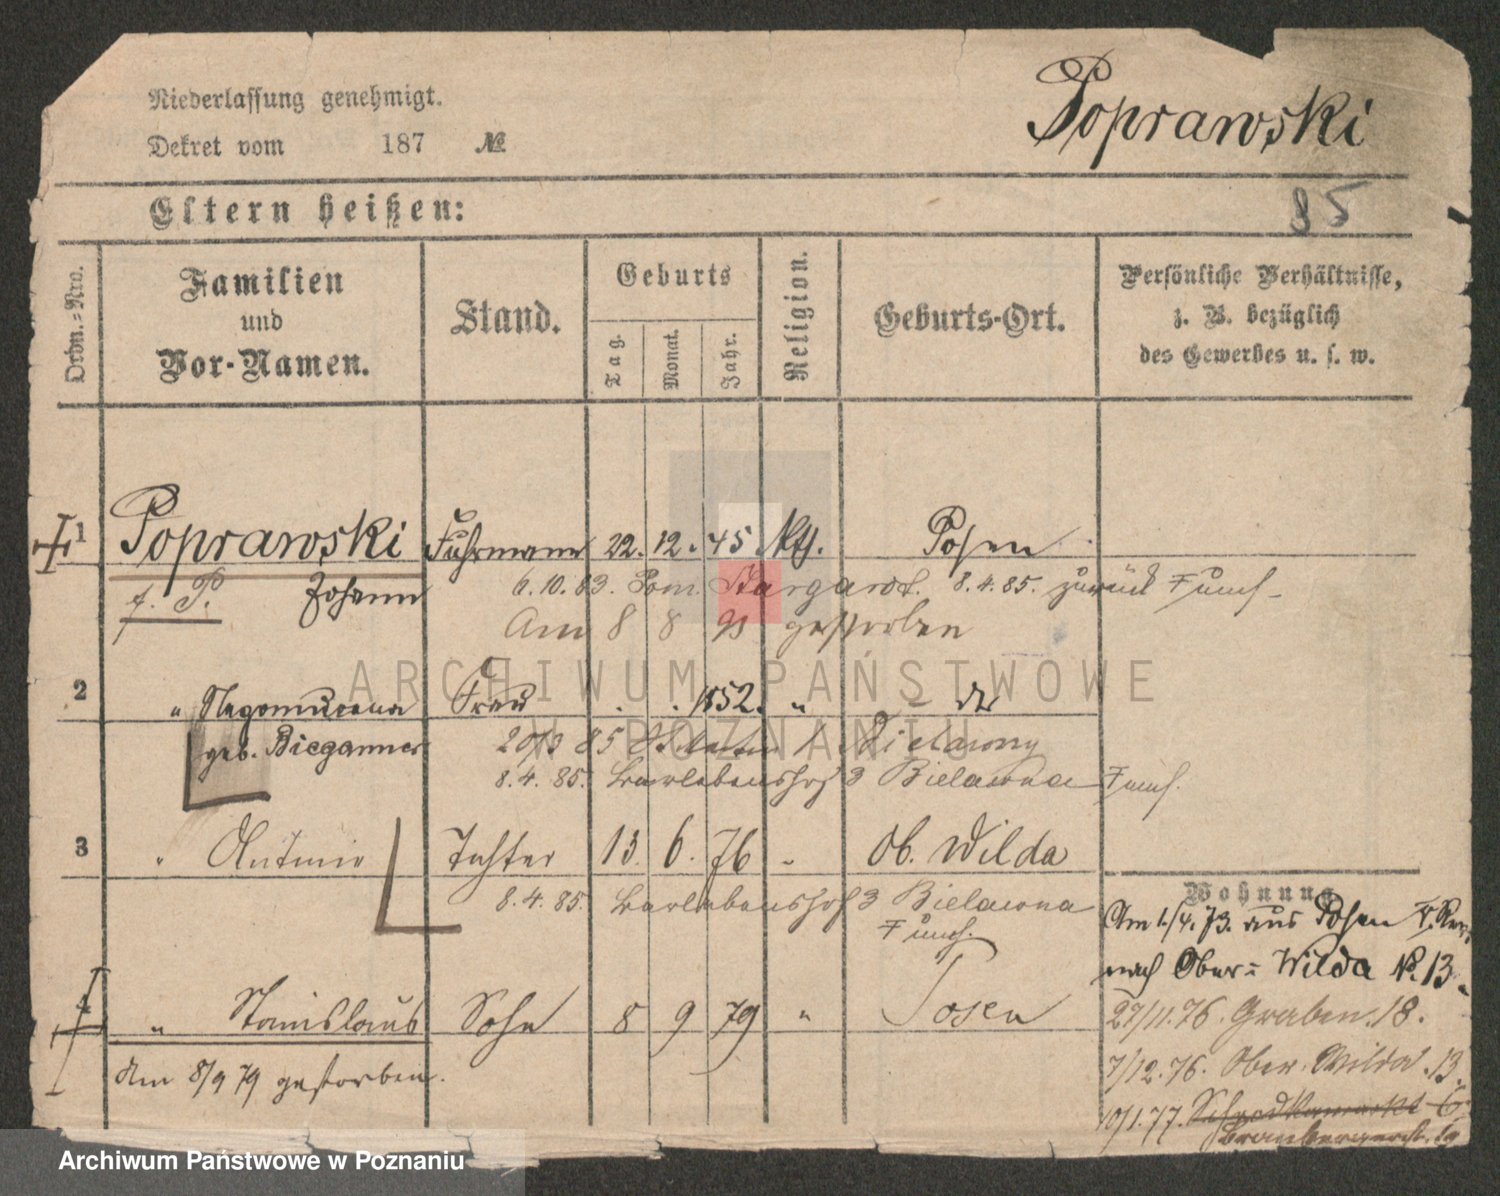 Niederlassung genehmigt.
Dekret vom 187 №
Poprawski
85
Eltern heißen:
Ordn.-Nro.
Familien
und
Vor-Namen.
Stand.
Geburts
Tag.
Monat.
Jahr.
Religion.
Geburts-Ort.
Persönliche Verhältnisse,
z. B. bezüglich
des Gewerbes u. s. w.
1 Poprawski Fuhrmann 22. 12. 45 Kth. Posen
f. P. Johann 6.10.83. Pom. Stargardt. 8.4.85. zurück
Am 8 8 gestorben
2 " Frau 1852. " do
geb. Bieganner 20/3 85
8.4.85. Barlebenshof 3 Bielawna
3 " Antonie Tochter 13. 6. 76 " Ob. Wilda
8.4.85. Barlebenshof 3 Bielawna
4 " Stanislaus Sohn 8 9 79 " Posen
Am 8/9 79 gestorben.
Wohnung
Am 1./4. 73. aus Posen
nach Ober-Wilda №. 13.
27/11.76. Graben. 18.
7/12.76. Ober. Wilda. 13.
10/1.77.
ARCHIWUM PAŃSTWOWE
W POZNANIU
Archiwum Państwowe w Poznaniu